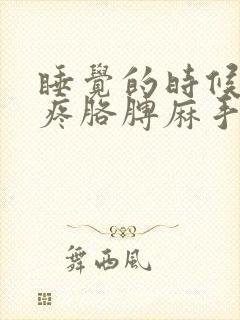 睡覺的時候
疼胳膊麻手
舞西風